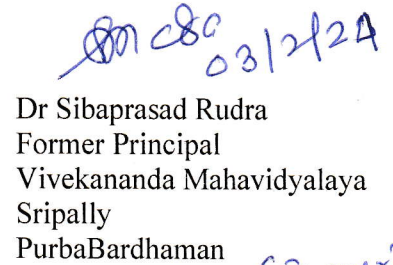 03/2/24
Dr Sibaprasad Rudra
Former Principal
Vivekananda Mahavidyalaya
Sripally
PurbaBardhaman